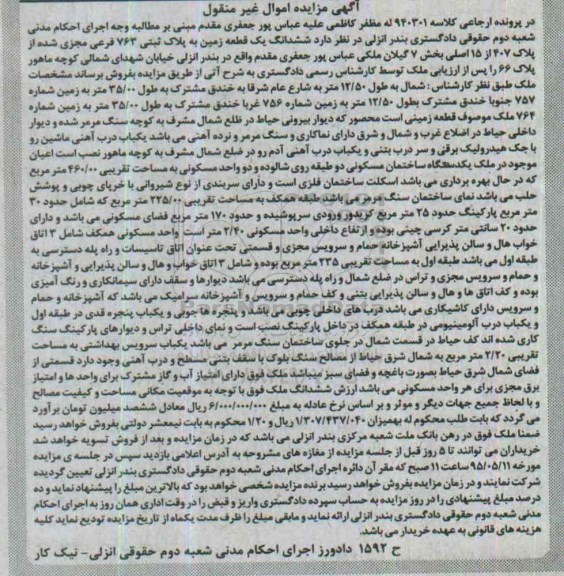 آگهی مزایده اموال غیر منقول
در پرونده ارجاعی کلاسه ۹۴۰۳۰۱ له مظفر کاظمی علیه عباس پور جعفری مقدم مبنی بر مطالبه وجه اجرای احکام مدنی
شعبه دوم حقوقی دادگستری بندر انزلی در نظر دارد ششدانگ یک قطعه زمین به پلاک ثبتی ۷۶۳ فرعی مجزی شده از
پلاک ۴۰۷ از ۱۵ اصلی بخش ۷ گیلان ملکی عباس پور جعفری مقدم واقع در بندر انزلی خیابان شهدای شمالی کوچه ماهور
پلاک ۶۶ را پس از ارزیابی ملک توسط کارشناس رسمی دادگستری به شرح آتی از طریق مزایده بفروش برساند مشخصات
ملک طبق نظر کارشناس : شمال به طول ۱۲/۵۰ متر به شارع عام شرقا به خندق مشترک به طول ۳۵/۰۰ متر به زمین شماره
۷۵۷ جنوبا خندق مشترک بطول ۱۲/۵۰ متر به زمین شماره ۷۵۶ غربا خندق مشترک به طول ۳۵/۰۰ متر به زمین شماره
۷۶۴ ملک موصوف قطعه زمینی است محصور که دیوار بیرونی حیاط در ظلع شمال مشرف به کوچه سنگ مرمر شده و دیوار
داخلی حیاط در اضلاع غرب و شمال و شرق دارای نماکاری و سنگ مرمر و نرده آهنی می باشد یکباب درب آهنی ماشین رو
با جک هیدرولیک برقی و سر درب بتنی و یکباب درب آهنی آدم رو در ضلع شمال مشرف به کوچه ماهور نصب است اعیان
موجود در ملک یکدستگاه ساختمان مسکونی دو طبقه روی شالوده و دو واحد مسکونی به مساحت تقریبی ۴۶۰/۰۰ متر مربع
که در حال بهره برداری می باشد اسکلت ساختمان فلزی است و دارای سربندی از نوع شیروانی با خرپای چوبی و پوشش
حلب می باشد نمای ساختمان سنگ مرمر می باشد طبقه همکف به مساحت تقریبی ۲۲۵/۰۰ متر مربع که شامل حدود ۳۰
متر مربع پارکینگ حدود ۲۵ متر مربع کریدور ورودی سرپوشیده و حدود ۱۷۰ متر مربع فضای مسکونی می باشد و دارای
حدود ۲۰ سانتی متر کرسی چینی بوده و ارتفاع داخلی واحد مسکونی ۲/۴۰ متر است واحد مسکونی همکف شامل ۳ اتاق
خواب هال و سالن پذیرایی آشپزخانه حمام و سرویس مجزی و قسمتی تحت عنوان اتاق تاسیسات و راه پله دسترسی به
طبقه اول می باشد طبقه اول به مساحت تقریبی ۲۳۵ متر مربع بوده و شامل ۳ اتاق خواب و هال و سالن پذیرایی و آشپزخانه
و حمام و سرویس مجزی و تراس در ضلع شمال و راه پله دسترسی می باشد دیوارها و سقف دارای سیمانکاری و رنگ آمیزی
بوده و کف اتاق ها و هال و سالن پذیرایی بتنی و کف حمام و سرویس و آشپزخانه سرامیک می باشد که آشپزخانه و حمام
و سرویس دارای کاشیکاری می باشد درب های داخلی چوبی می باشد و پنجره ها چوبی و یکباب پنجره قدی در طبقه اول
و یکباب درب آلومینیومی در طبقه همکف در داخل پارکینگ نصب است و نمای داخلی تراس و دیوارهای پارکینگ سنگ
کاری شده اند کف حیاط در قسمت شمال در جلوی ساختمان سنگ مرمر می باشد یکباب سرویس بهداشتی به مساحت
تقریبی ۲/۲۰ متر مربع به شمال شرق حیاط از مصالح سنگ بلوک با سقف بتنی مسطح و درب آهنی وجود دارد قسمتی از
فضای شمال شرق حیاط بصورت باغچه و فضای سبز میباشد ملک فوق دارای امتیاز آب و گاز مشترک برای واحد ها و امتیاز
برق مجزی برای هر واحد مسکونی می باشد ارزش ششدانگ ملک فوق با توجه به موقعیت مکانی مساحت و کیفیت مصالح
و با لحاظ جمیع جهات دیگر و موثر و بر اساس نرخ عادله به مبلغ ۶/۰۰۰/۰۰۰/۰۰۰ ریال معادل ششصد میلیون تومان برآورد
می گردد که بابت طلب محکوم له بهمیزان ۱/۳۰۷/۴۳۷/۰۴۰ ریال و ۱/۲۰ محکوم به بابت نیمعشر دولتی بفروش خواهد رسید
ضمنا ملک فوق در رهن بانک ملت شعبه مرکزی بندر انزلی می باشد که در زمان مزایده و بعد از فروش تسویه خواهد شد
خریداران می توانند تا ۵ روز قبل از جلسه مزایده از مغازه های مشروحه به آدرس اعلامی بازدید سپس در جلسه ی مزایده
مورخه ۹۵/۰۵/۱۱ ساعت ۱۱ صبح که مقر آن دائره اجرای احکام مدنی شعبه دوم حقوقی دادگستری بندر انزلی تعیین گردیده
شرکت نمایند و در زمان مزایده بفروش خواهد رسید برنده مزایده شخصی خواهد بود که بالاترین مبلغ را پیشنهاد نماید و ده
درصد مبلغ پیشنهادی را در روز مزایده به حساب سپرده دادگستری واریز و فیش را در وقت اداری همان روز به اجرای احکام
مدنی شعبه دوم حقوقی دادگستری بندر انزلی ارائه نماید و مابقی مبلغ را ظرف مدت یکماه از تاریخ مزایده تودیع نماید کلیه
هزینه های قانونی به عهده خریدار می باشد.
ح ۱۵۹۲ دادورز اجرای احکام مدنی شعبه دوم حقوقی انزلی- نیک کار